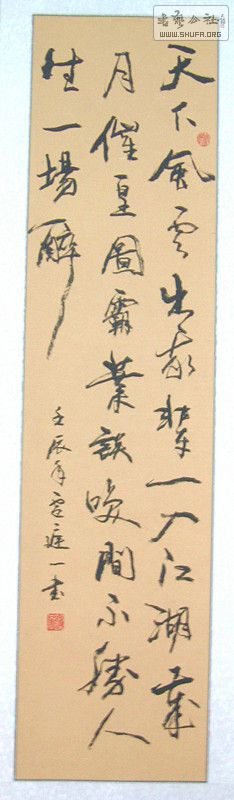 書藝公社
WWW.SHUFA.ORG
天下風雲出我輩一入江湖歲
月催皇圖霸業談咲間不勝人
生一場醉
壬辰年 一書